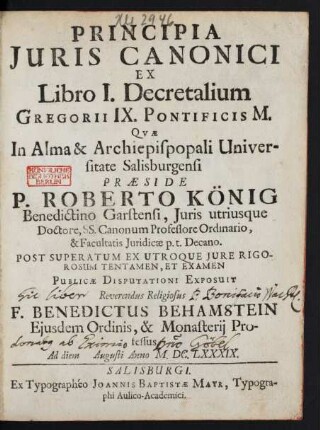 XII 2946
PRINCIPIA
JURIS CANONICI
EX
Libro I. Decretalium
GREGORII IX. PONTIFICIS M.
QVÆ
In Alma & Archiepispopali Univer-
sitate Salisburgensi
PRÆSIDE
P. ROBERTO KÖNIG
Benedictino Garstensi, Juris utriusque
Doctore, SS. Canonum Professore Ordinario,
& Facultatis Juridicæ p. t. Decano.
POST SUPERATUM EX UTROQUE JURE RIGO-
ROSUM TENTAMEN, ET EXAMEN
PUBLICÆ DISPUTATIONI EXPOSUIT
Hic liber
Reverendus Religiosus P. Bonifacius
F. BENEDICTUS BEHAMSTEIN
Ejusdem Ordinis, & Monasterij Pro-
ab
fessus,
Ad diem Augusti Anno M. DC. LXXXIX.
SALISBURGI,
Ex Typographéo JOANNIS BAPTISTÆ MAYR, Typogra-
phi Aulico-Academici.
BERLIN